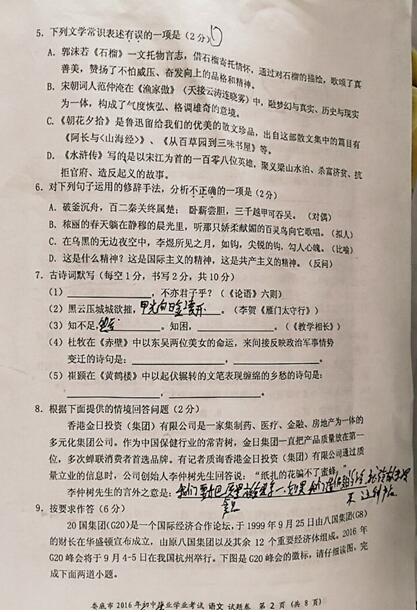 5. 下列文学常识表述有误的一项是（2分）
A. 郭沫若《石榴》一文托物言志，借石榴寄托情怀，通过对石榴的描绘，歌颂了真
善美，赞扬了不怕威压、奋发向上的品格和精神。
B. 宋朝词人范仲淹在《渔家傲》（天接云涛连晓雾）中，融梦幻与真实、历史与现实
为一体，构成了气度恢弘、格调雄奇的意境。
C.《朝花夕拾》是鲁迅留给我们的优美的散文珍品，出自这部散文集中的篇目有
《阿长与<山海经>》、《从百草园到三味书屋》等。
D.《水浒传》写的是以宋江为首的一百零八位英雄，聚义梁山水泊、杀富济贫、抗
拒官府、造反起义的故事。
6. 对下列句子运用的修辞手法，分析不正确的一项是（2分）
A. 破釜沉舟，百二秦关终属楚； 卧薪尝胆，三千越甲可吞吴。（对偶）
B. 秾丽的春天躺在静穆的晨光里，听那只娇柔献媚的百灵鸟向它歌唱。（拟人）
C. 在乌黑的无边夜空中，李煜所见之月，如钩，尖锐的钩，勾人心魄。（比喻）
D. 这是什么精神？这是国际主义的精神，这是共产主义的精神。（反问）
7. 古诗词默写（每空1分，书写2分，共10分）
（1） ，不亦君子乎？（《论语》六则）
（2）黑云压城城欲摧， 甲光向日金 开 。（李贺《雁门太守行》）
（3）知不足， ，知困， 。（《教学相长》）
（4）杜牧在《赤壁》中以东吴两位美女的命运，来间接反映政治军事情势
变迁的诗句是：
（5）崔颢在《黄鹤楼》中以起伏辗转的文笔表现缠绵的乡愁的诗句是：
8. 根据下面提供的情境回答问题（2分）
香港金日投资（集团）有限公司是一家集制药、医疗、金融、房地产为一体的
多元化集团公司。作为中国保健行业的常青树，金日集团一直把产品质量放在第一
位，多次蝉联消费者首选品牌。有记者质询香港金日投资（集团）有限公司通过质
量立业的信息时，公司创始人李仲树先生回答说：“纸扎的花骗不了蜜蜂。”
李仲树先生的言外之意是：
9. 按要求作答（6分）
20国集团(G20)是一个国际经济合作论坛，于1999年9月25日由八国集团(G8)
的财长在华盛顿宣布成立，由原八国集团以及其余12个重要经济体组成。2016年
G20峰会将于9月4-5日在我国杭州举行。下图是G20峰会的徽标，请仔细读图，完
成下面两道小题。
娄底市2016年初中毕业学业考试 语文 试题卷 第2页（共8页）